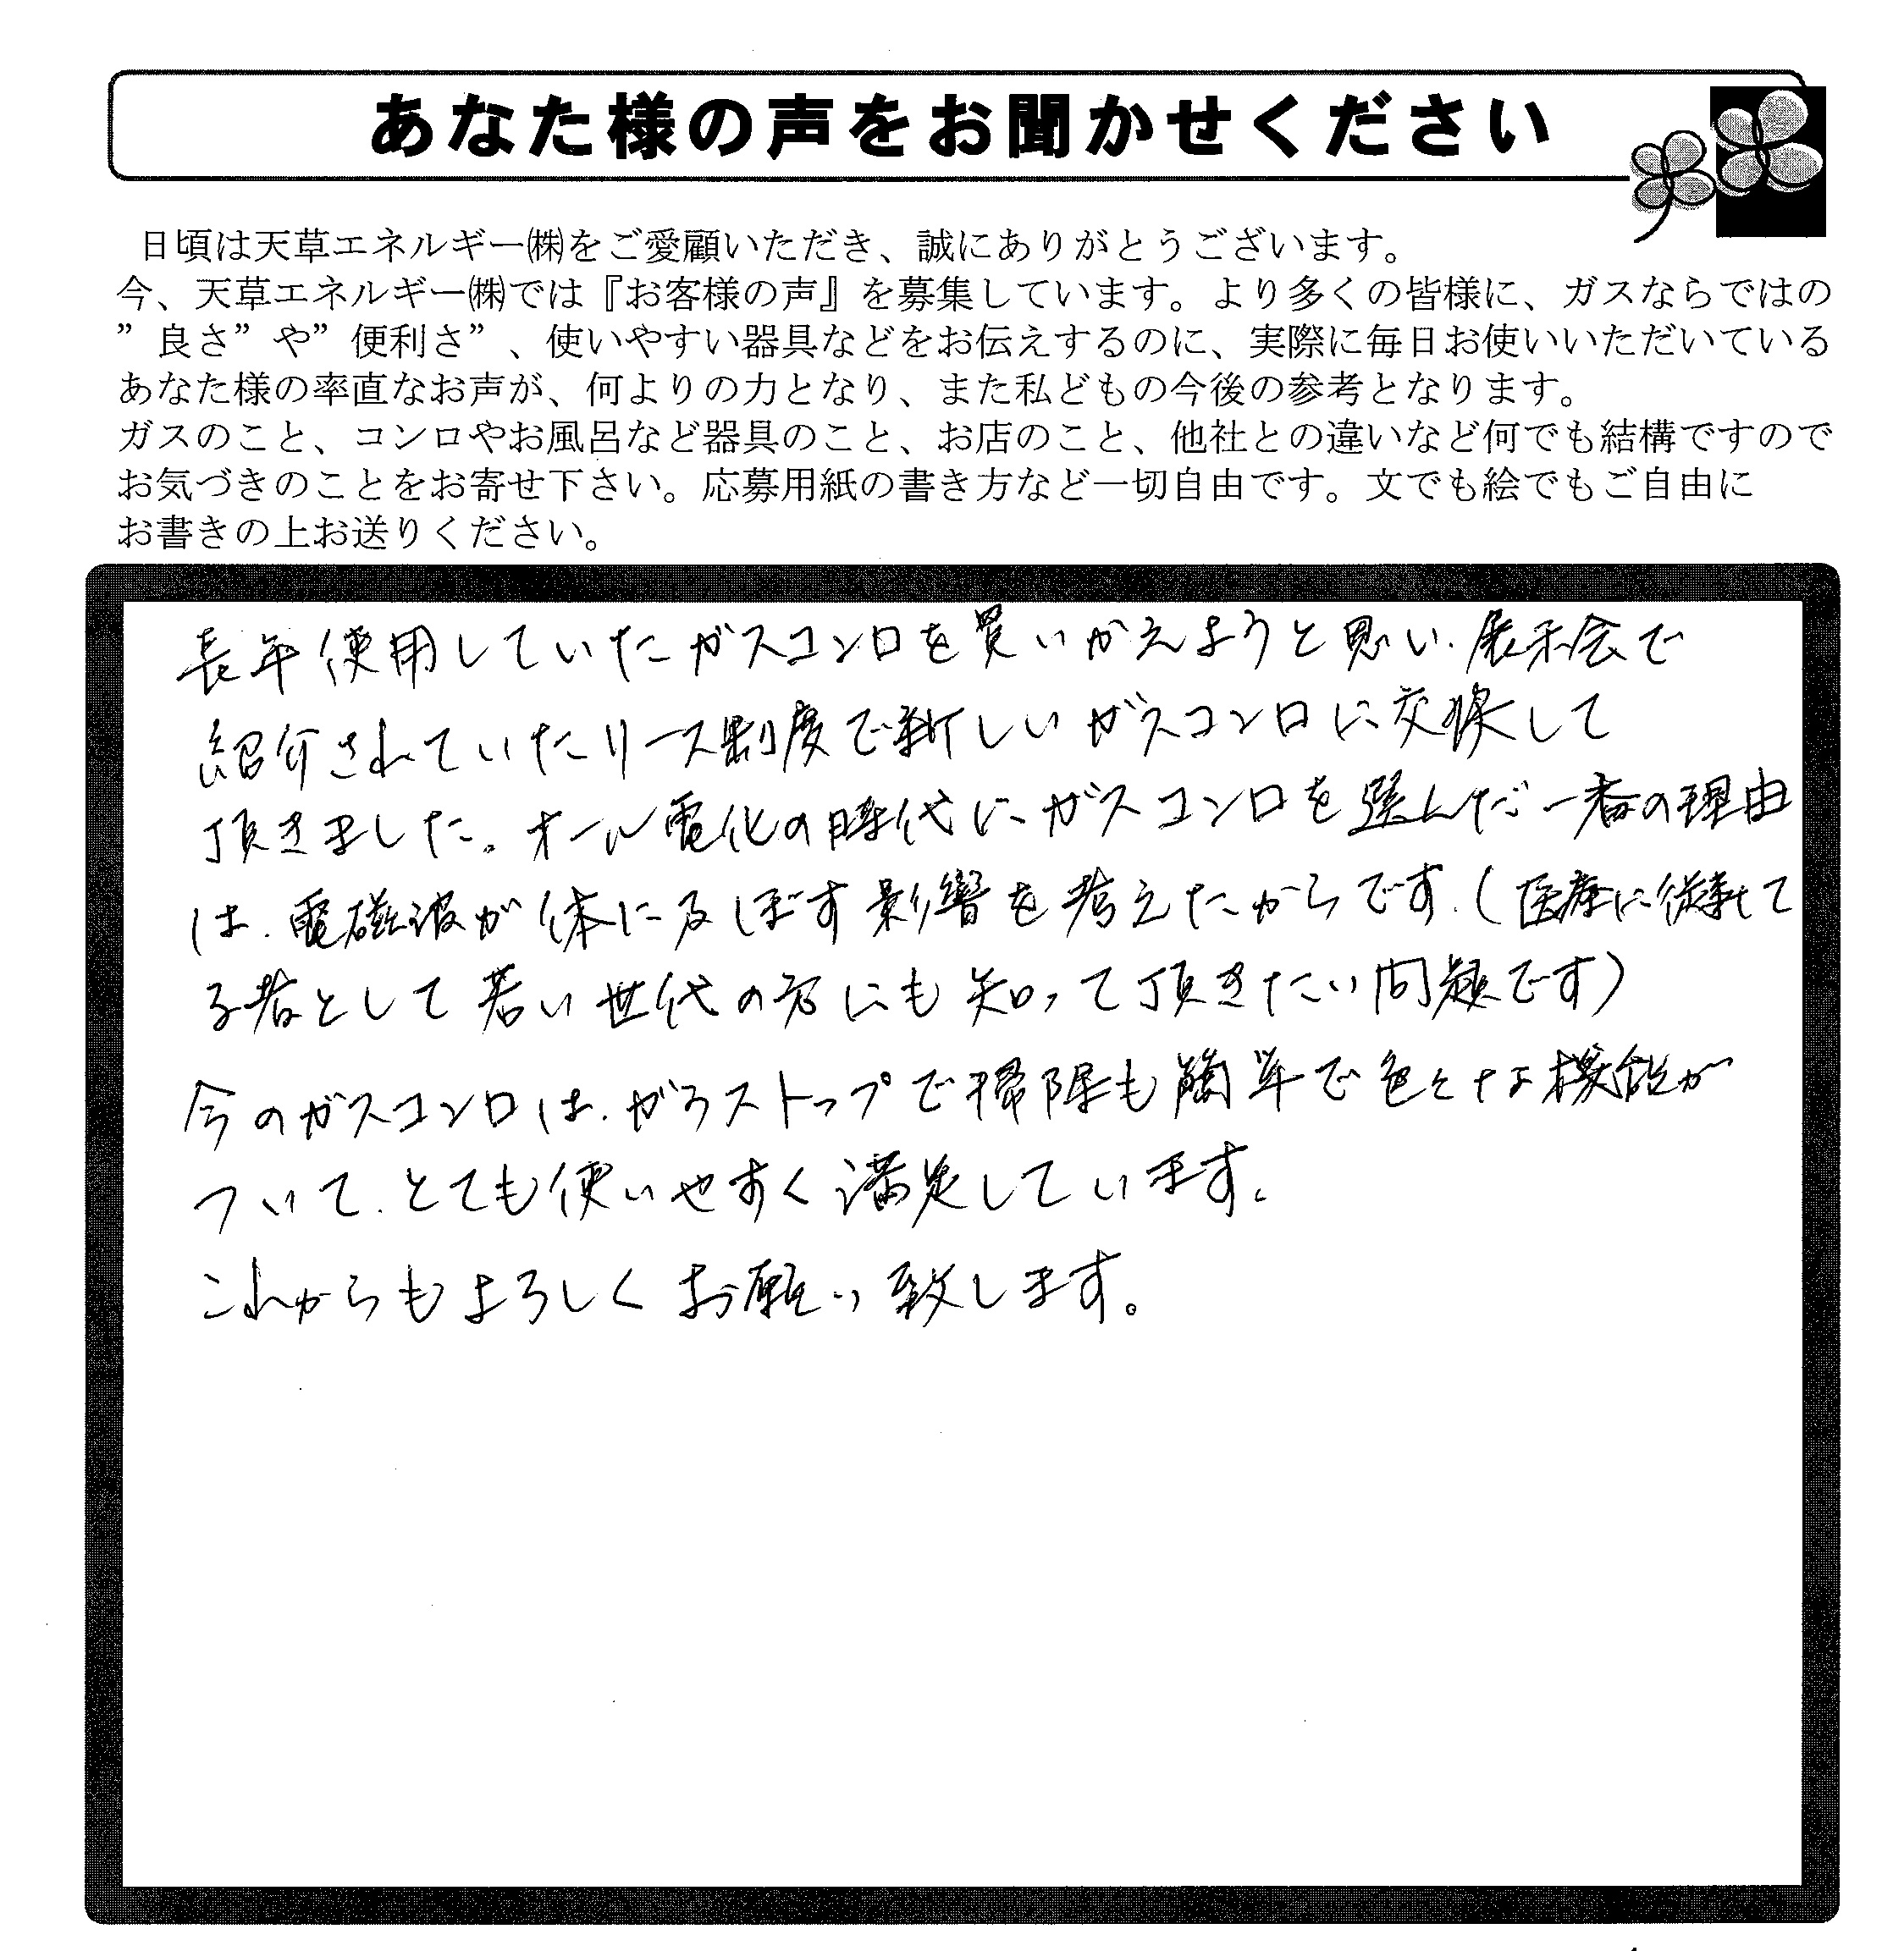 あなた様の声をお聞かせください
日頃は天草エネルギー㈱をご愛顧いただき、誠にありがとうございます。
今、天草エネルギー㈱では『お客様の声』を募集しています。より多くの皆様に、ガスならではの
”良さ”や”便利さ”、使いやすい器具などをお伝えするのに、実際に毎日お使いいただいている
あなた様の率直なお声が、何よりの力となり、また私どもの今後の参考となります。
ガスのこと、コンロやお風呂など器具のこと、お店のこと、他社との違いなど何でも結構ですので
お気づきのことをお寄せ下さい。応募用紙の書き方など一切自由です。文でも絵でもご自由に
お書きの上お送りください。
長年使用していたガスコンロを買いかえようと思い、展示会で
紹介されていたリース制度で新しいガスコンロに交換して
頂きました。オール電化の時代にガスコンロを選んだ一番の理由
は、電磁波が体に及ぼす影響を考えたからです。(医療に従事して
る者として若い世代の方にも知って頂きたい問題です)
今のガスコンロは、ガラストップで掃除も簡単で色々な機能が
ついて、とても使いやすく満足しています。
これからもよろしくお願い致します。